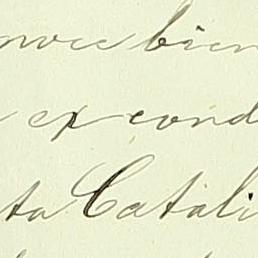 noce bien
ex cond
ta Catali